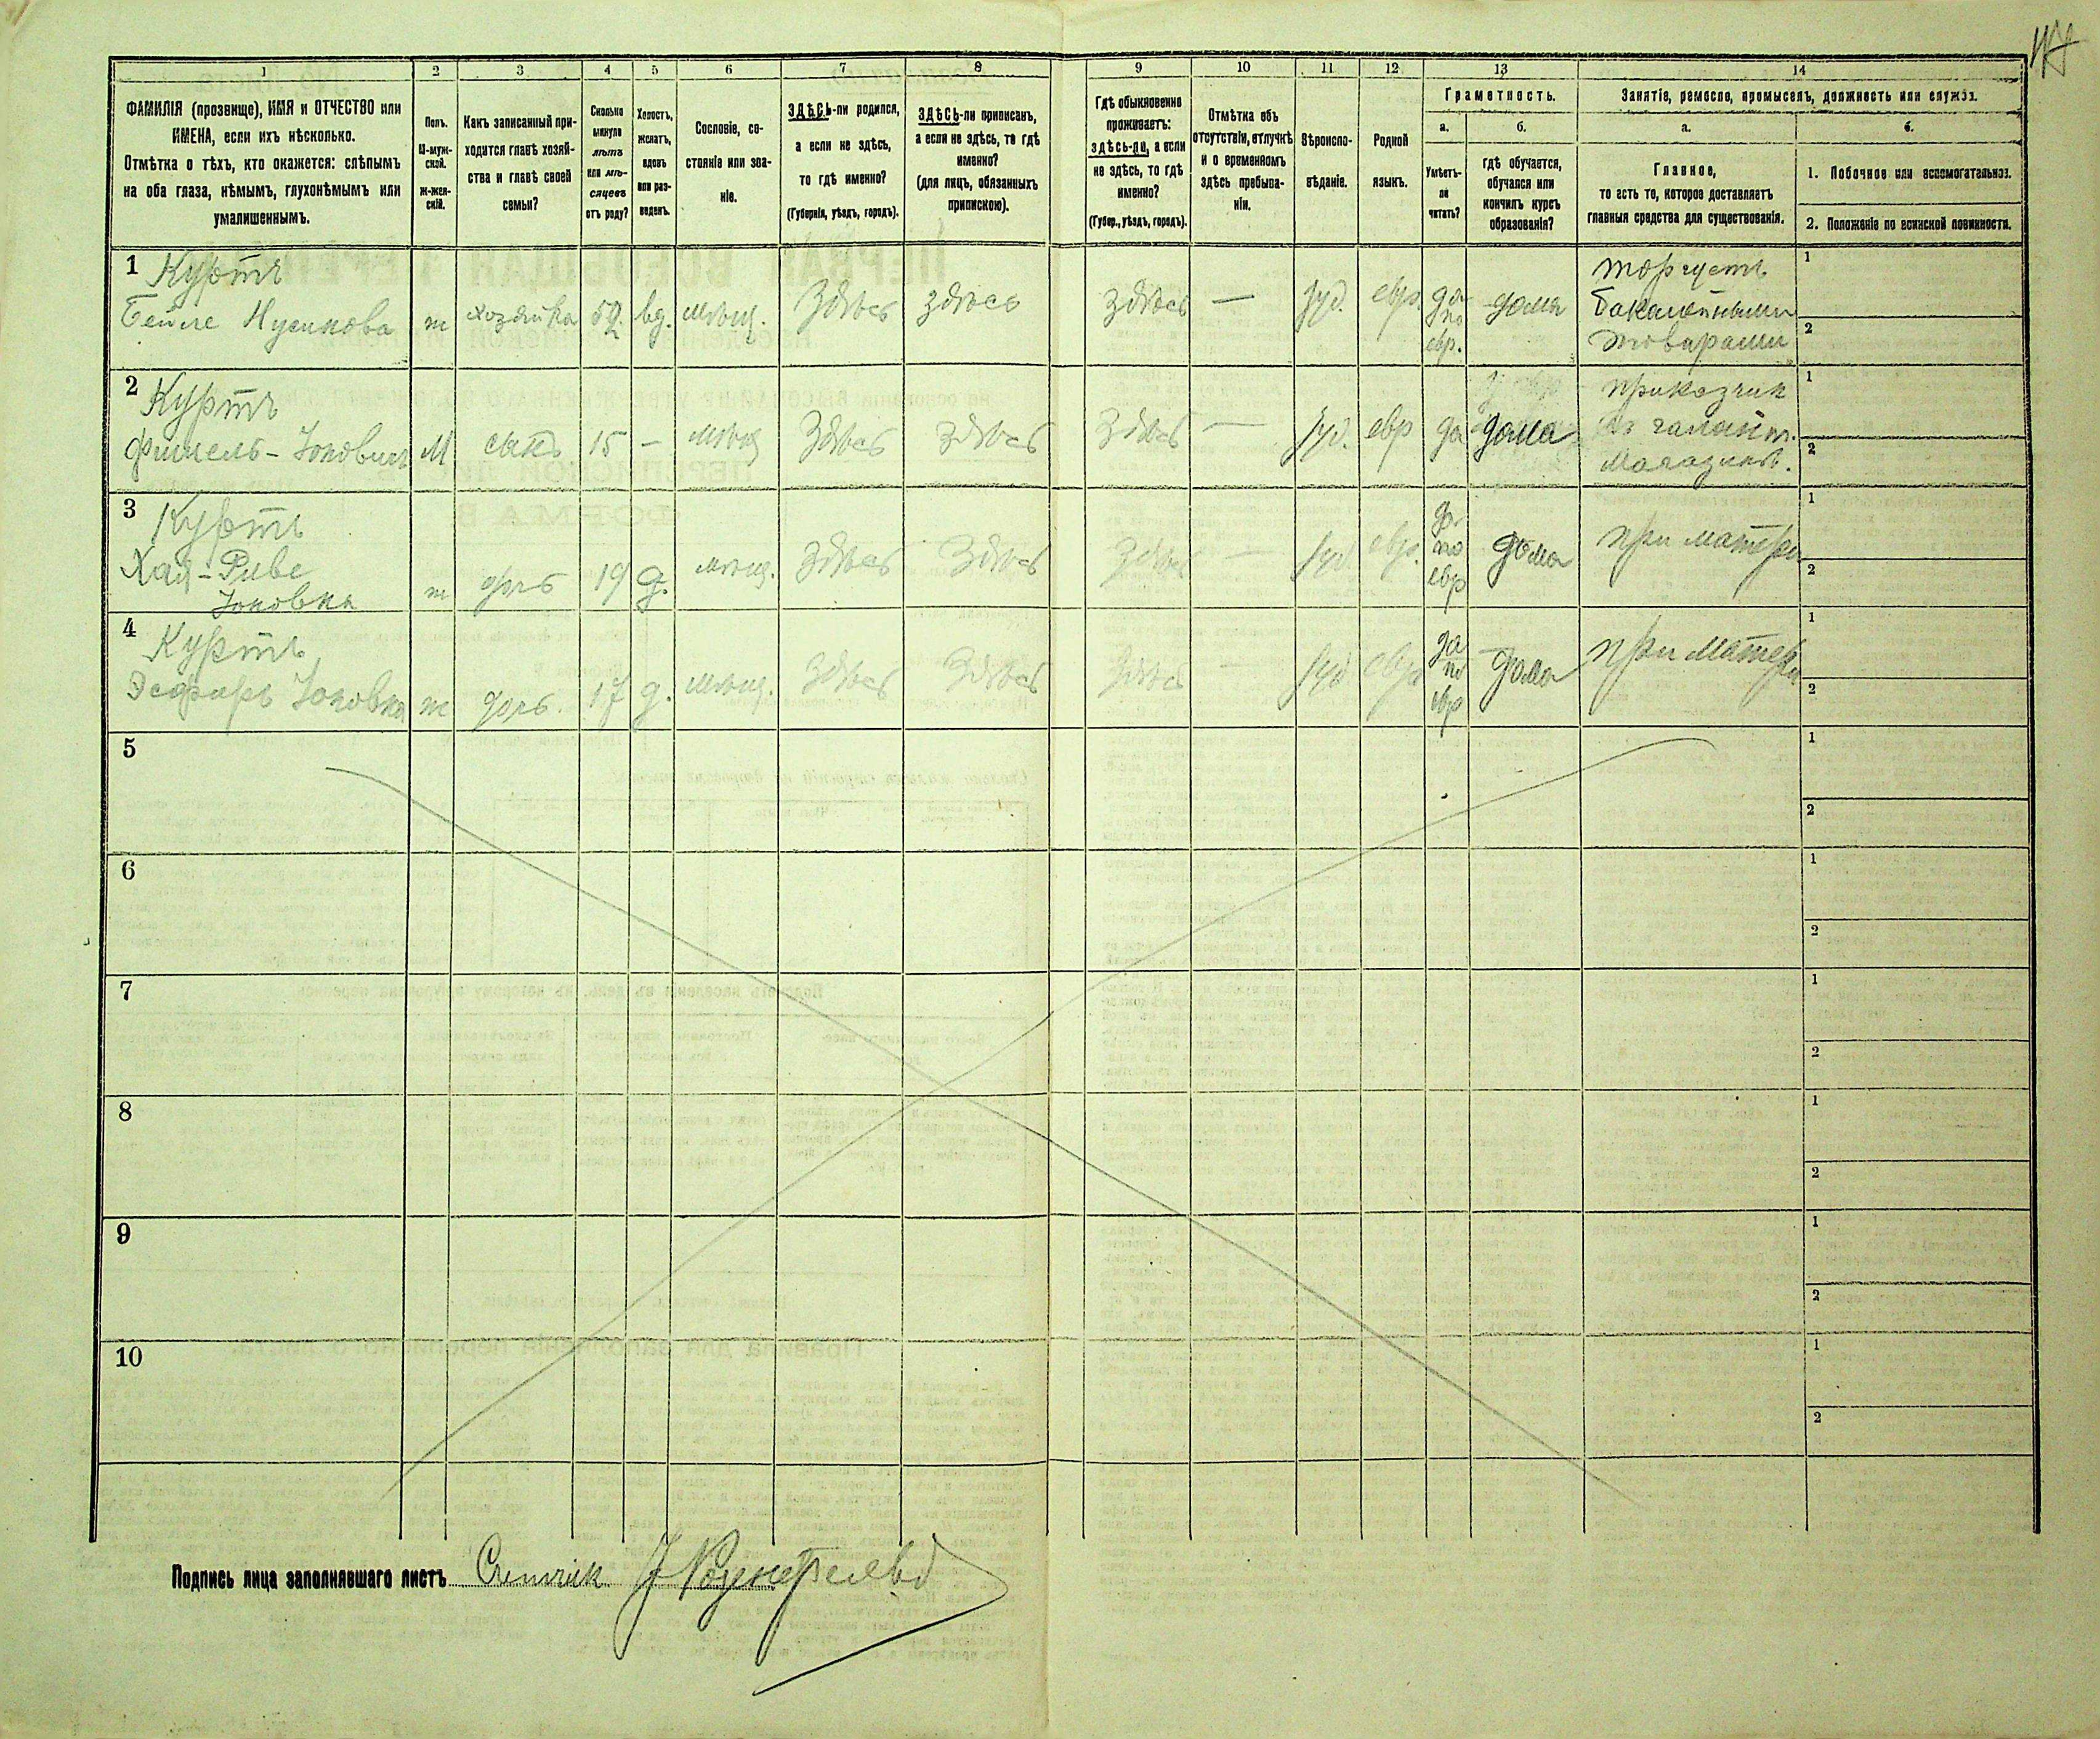 47
1 2 3 4 5 6 7 8 9 10 11 12 13 14
ФАМИЛІЯ (прозвище), ИМЯ и ОТЧЕСТВО или
ИМЕНА, если ихъ нѣсколько.
Отмѣтка о тѣхъ, кто окажется: слѣпымъ
на оба глаза, нѣмымъ, глухонѣмымъ или
умалишеннымъ.
Полъ.
М-муж-
ской.
Ж-жен-
скій.
Какъ записанный при-
ходится главѣ хозяй-
ства и главѣ своей
семьи?
Сколько
минуло
лѣтъ
или мѣ-
сяцевъ
отъ роду?
Холостъ,
женатъ,
вдовъ
или раз-
веденъ.
Сословіе, со-
стояніе или зва-
ніе.
ЗДѢСЬ-ли родился,
а если не здѣсь,
то гдѣ именно?
(Губернія, уѣздъ, городъ).
ЗДѢСЬ-ли приписанъ,
а если не здѣсь, то гдѣ
именно?
(для лицъ, обязанныхъ
припискою).
Гдѣ обыкновенно
проживаетъ:
здѣсь-ли, а если
не здѣсь, то гдѣ
именно?
(Губер., уѣздъ, городъ).
Отмѣтка объ
отсутствіи, отлучкѣ
и о временномъ
здѣсь пребыва-
ніи.
Вѣроиспо-
вѣданіе.
Родной
языкъ.
Грамотность.
а.
Умѣетъ-
ли
читать?
б.
гдѣ обучается,
обучался или
кончилъ курсъ
образованія?
Занятіе, ремесло, промыселъ, должность или служба.
а.
Главное,
то есть то, которое доставляетъ
главныя средства для существованія.
б.
1. Побочное или вспомогательное.
2. Положеніе по воинской повинности.
1 Куртъ
Бейле Нусимова ж хозяйка 52. вд. мѣщ. Здѣсь здѣсь здѣсь — Іуд. евр. да по евр. дома
торгуетъ
бакалейными
товарами
1
2
2 Куртъ
Фишель-Іоновичъ М сынъ 15 — мѣщ Здѣсь Здѣсь Здѣсь — Іуд. евр да дома
приказчик
въ галант.
магазинѣ.
1
2
3 Куртъ
Хая-Риве
Іоновна ж дочь 19 д. мѣщ. Здѣсь Здѣсь Здѣсь — Іуд евр. да по евр дома при матери
1
2
4 Куртъ
Эсфирь Іоновна ж дочь. 17 д. мѣщ. Здѣсь Здѣсь Здѣсь — Іуд евр да по евр дома при матери
1
2
5
1
2
6
1
2
7
1
2
8
1
2
9
1
2
10
1
2
Подпись лица заполнявшаго листъ Счетчик Розенфельд